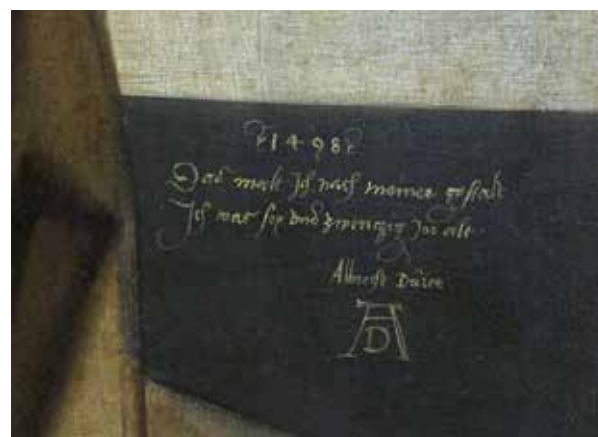 1498
Das malt Ich nach meiner gestalt
Ich was sex vnd zwenczig Jor alt
Albrecht Dürer
AD